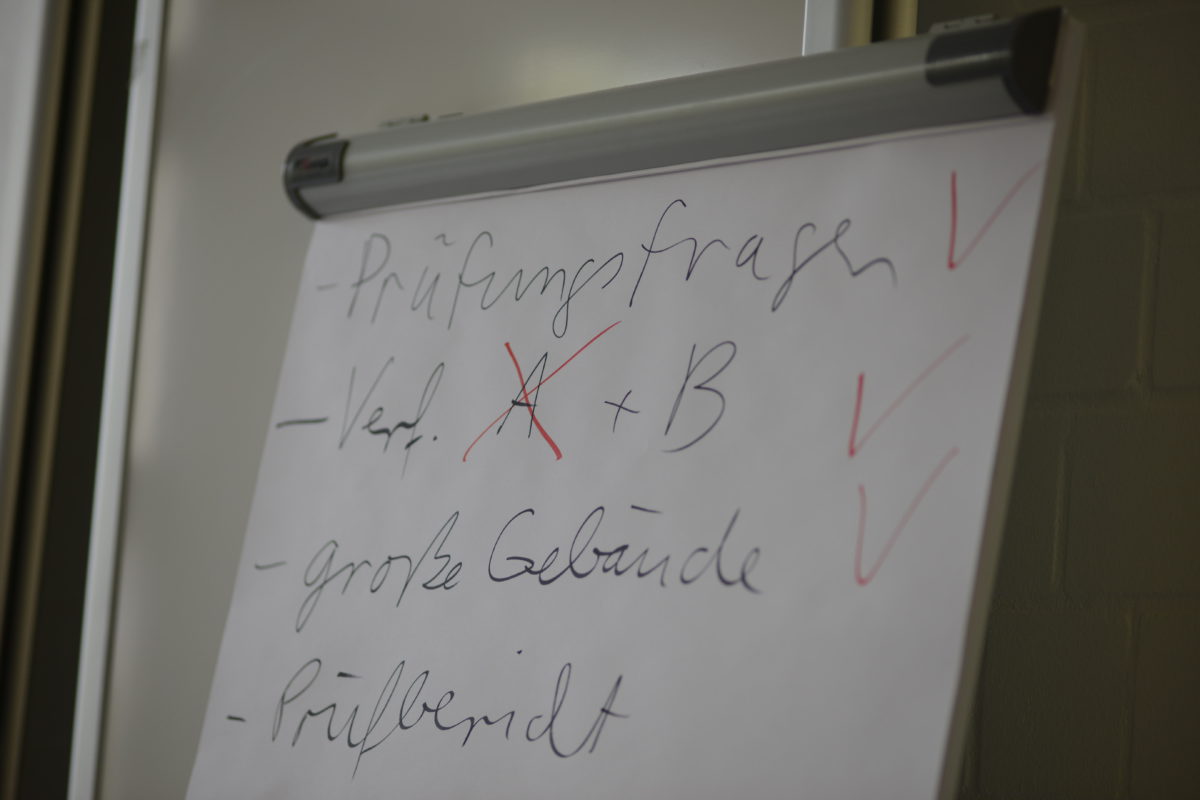 - Prüfungsfragen
- Verf. A + B
- große Gebäude
- Prüfbericht